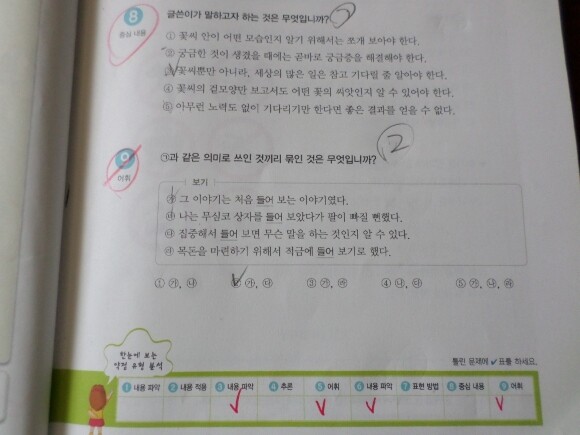 8
중심 내용
글쓴이가 말하고자 하는 것은 무엇입니까?
① 꽃씨 안이 어떤 모습인지 알기 위해서는 쪼개 보아야 한다.
② 궁금한 것이 생겼을 때에는 곧바로 궁금증을 해결해야 한다.
③ 꽃씨뿐만 아니라, 세상의 많은 일은 참고 기다릴 줄 알아야 한다.
④ 꽃씨의 겉모양만 보고서도 어떤 꽃의 씨앗인지 알 수 있어야 한다.
⑤ 아무런 노력도 없이 기다리기만 한다면 좋은 결과를 얻을 수 없다.
9
어휘
㉠과 같은 의미로 쓰인 것끼리 묶인 것은 무엇입니까?
2
보기
㉮ 그 이야기는 처음 들어 보는 이야기였다.
㉯ 나는 무심코 상자를 들어 보았다가 팔이 빠질 뻔했다.
㉰ 집중해서 들어 보면 무슨 말을 하는 것인지 알 수 있다.
㉱ 목돈을 마련하기 위해서 적금에 들어 보기로 했다.
① ㉮, ㉯ ② ㉮, ㉰ ③ ㉮, ㉱ ④ ㉯, ㉰ ⑤ ㉯, ㉱
한눈에 보는
약점 유형 분석
틀린 문제에 ✓표를 하세요.
1 내용 파악 2 내용 적용 3 내용 파악 4 추론 5 어휘 6 내용 파악 7 표현 방법 8 중심 내용 9 어휘